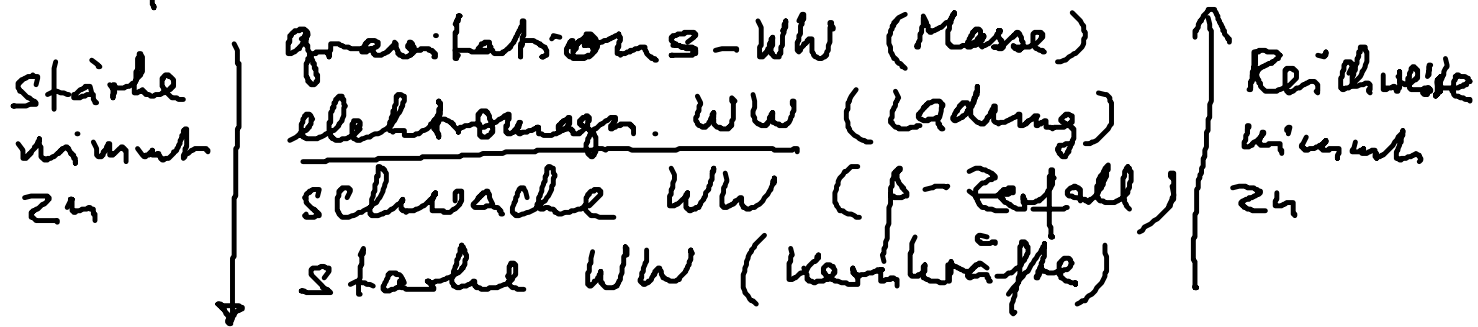 Stärke
nimmt
zu
gravitations-WW (Masse)
elektromagn. WW (Ladung)
schwache WW (β-Zerfall)
starke WW (Kernkräfte)
Reichweite
nimmt
zu